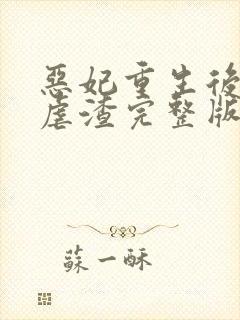 惡妃重生後
虐渣完整版
蘇一酥